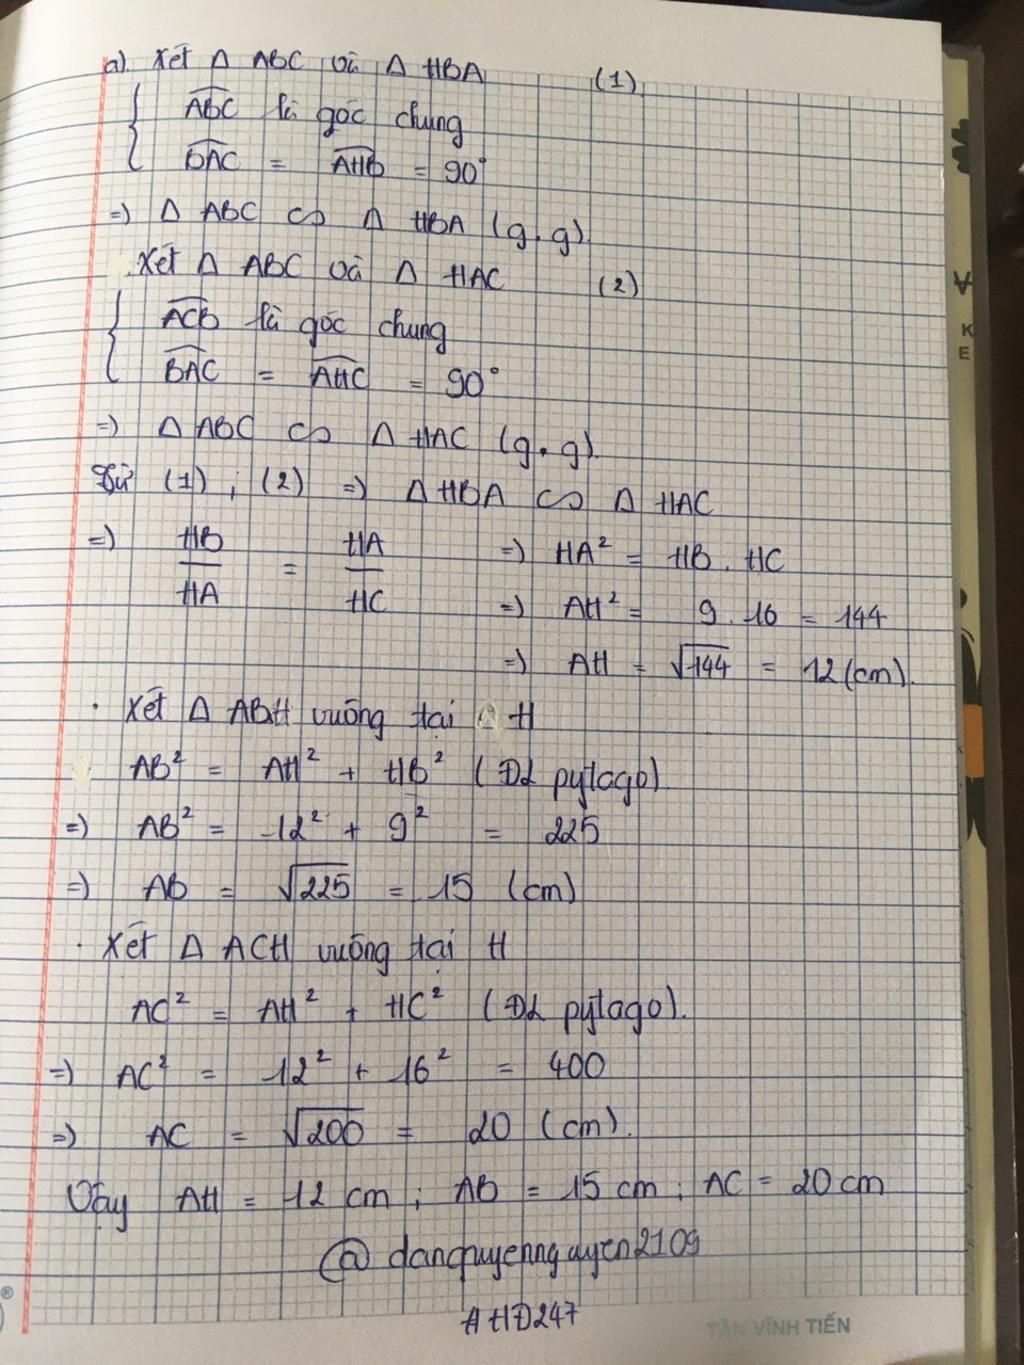 a). Xét Δ ABC và Δ HBA (1)
ABC là góc chung
BAC = AHB = 90°
=) Δ ABC ∽ Δ HBA (g.g).
. Xét Δ ABC và Δ HAC (2)
ACB là góc chung
BAC = AHC = 90°
=) Δ ABC ∽ Δ HAC (g.g).
Từ (1) ; (2) =) Δ HBA ∽ Δ HAC
=) HB/HA = HA/HC =) HA² = HB . HC
=) AH² = 9 . 16 = 144
=) AH = √144 = 12 (cm).
. Xét Δ ABH vuông tại H
AB² = AH² + HB² (ĐL pytago)
=) AB² = 12² + 9² = 225
=) AB = √225 = 15 (cm)
. Xét Δ ACH vuông tại H
AC² = AH² + HC² (ĐL pytago).
=) AC² = 12² + 16² = 400
=) AC = √200 = 20 (cm).
Vậy AH = 12 cm ; AB = 15 cm ; AC = 20 cm
@danquyennguyen2109
AHD247
TÂN VĨNH TIẾN
K
E